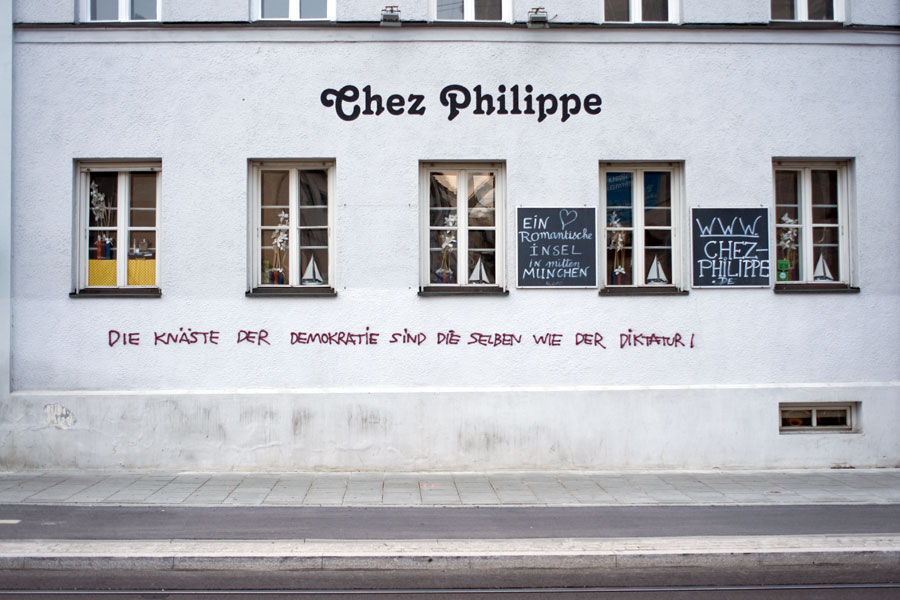 Chez Philippe
EIN
Romantische
INSEL
in mitten
MUNCHEN
WWW
CHEZ-
PHILIPPE
.DE
DIE KNÄSTE DER DEMOKRATIE SIND DIE SELBEN WIE DER DIKTATUR!